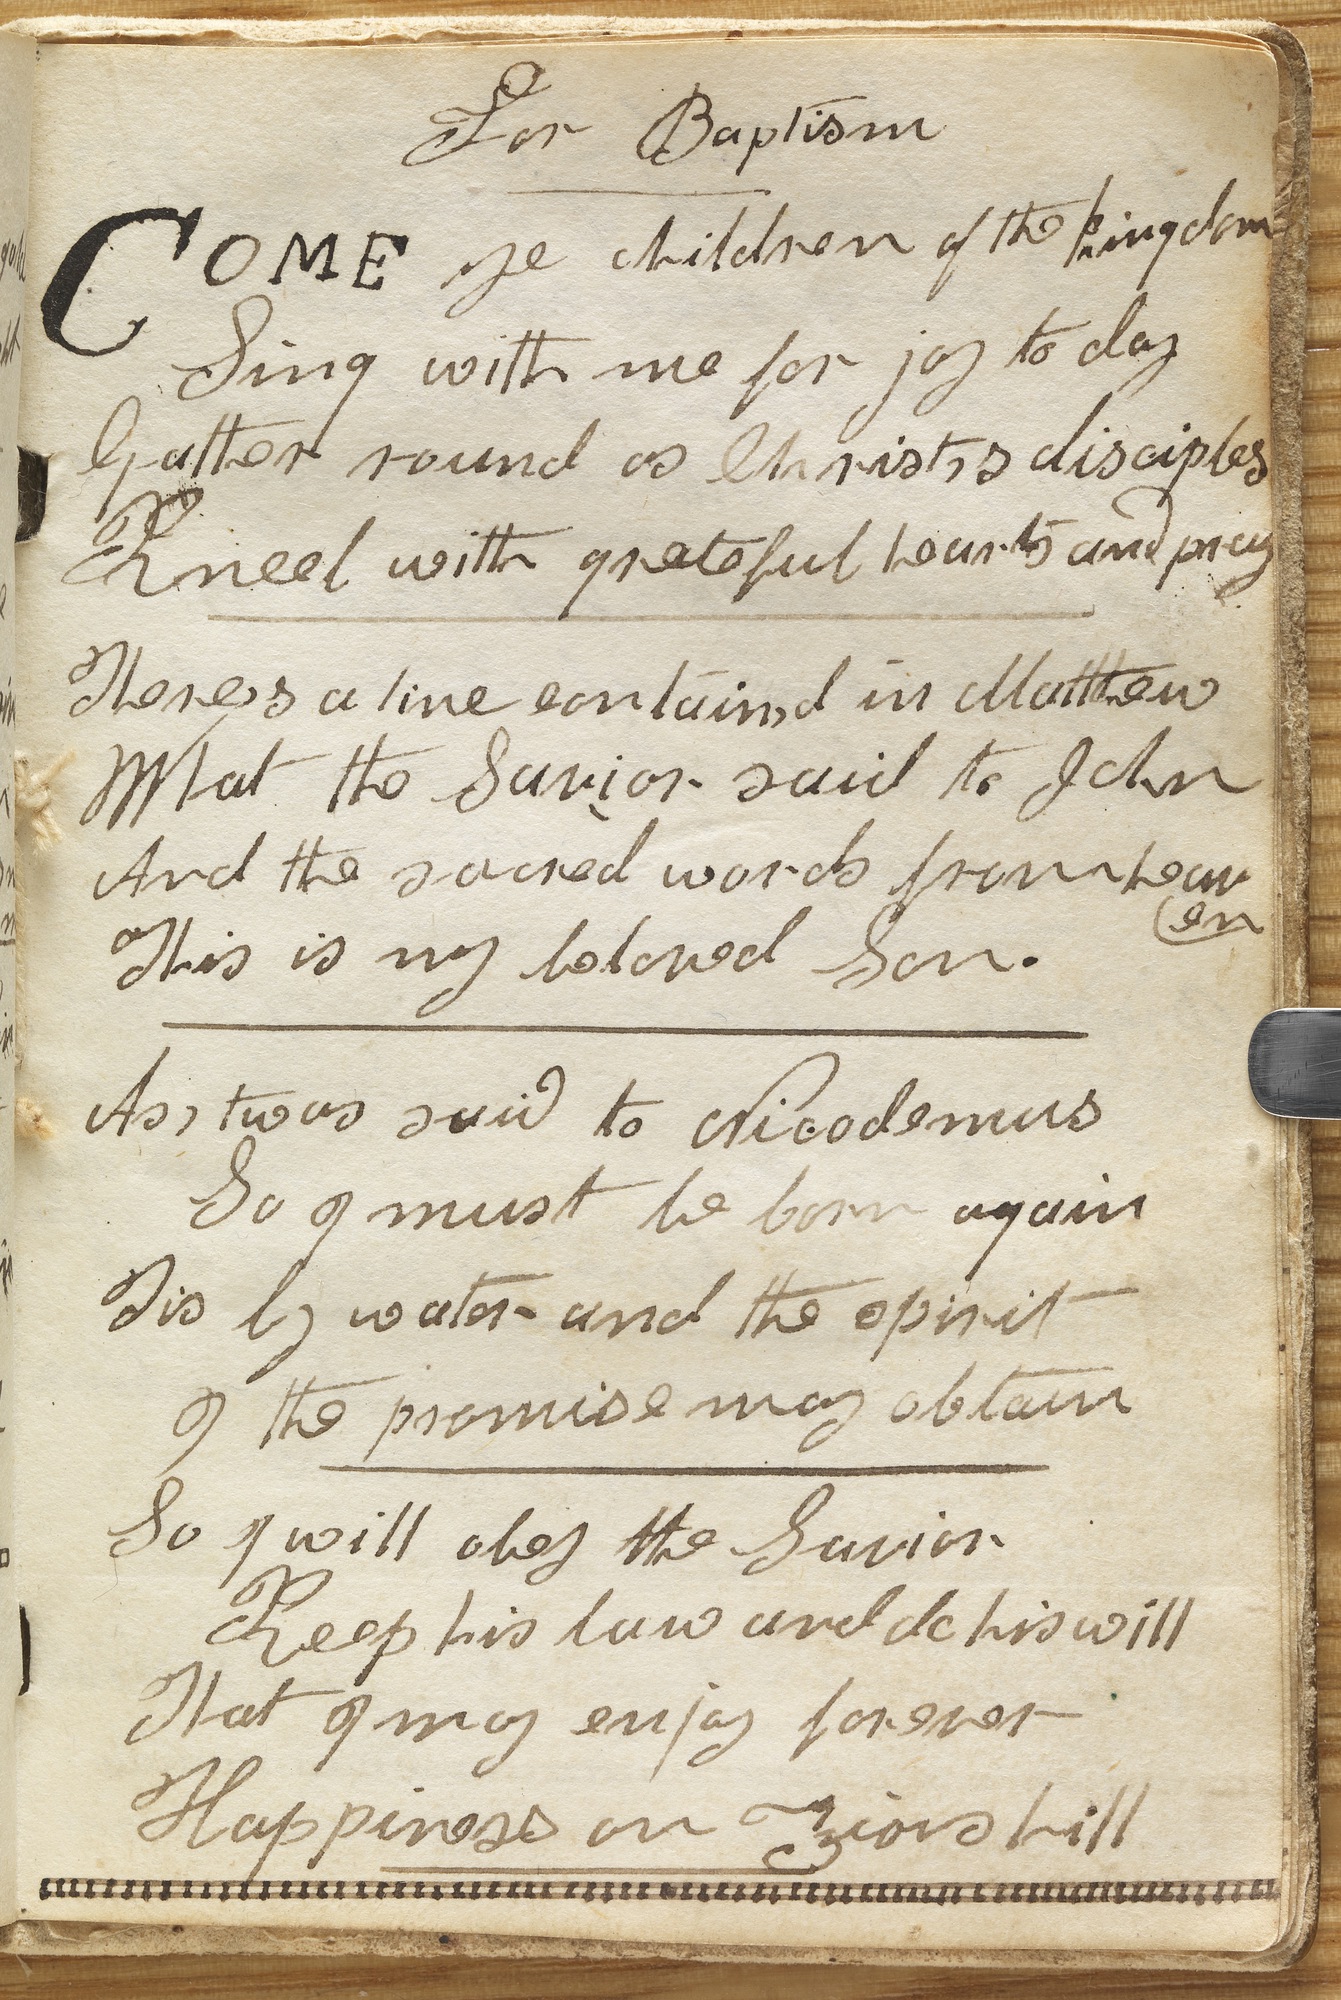 For Baptism
COME ye children of the kingdom
Sing with me for joy to day
Gather round as Christ,s disciples
Kneel with grateful hearts and pray
There,s a line contain,d in Matthew
What the Savior said to John
And the sacred words from heav
(en
This is my beloved Son.
As, twas said to Nicodemus
So I must be born again
Tis by water and the spirit
I the promise may obtain
So I will obey the Savior
Keep his law and do his will
That I may enjoy forever
Happiness on Zions hill